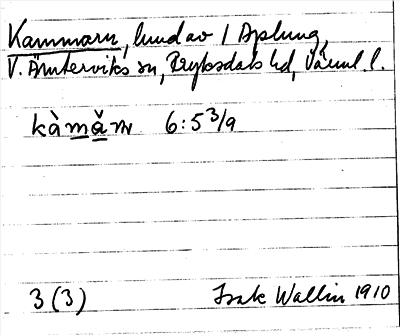 Kammarn, lund av 1 Asplung,
V. Ämterviks sn, Fryksdals hd, Värml. l.
kàmǎn 6:5 3/9
3 (3) Isak Wallin 1910